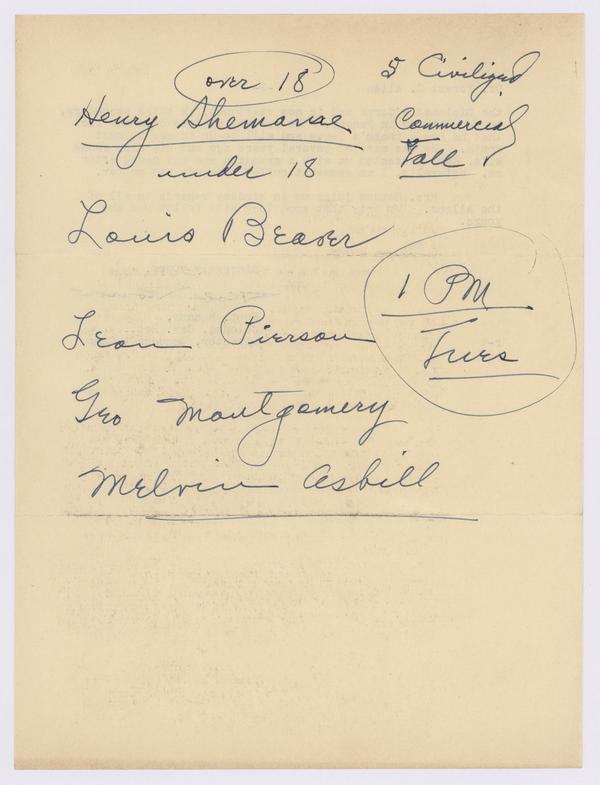 over 18
Henry Shemamae
under 18
Louis Beaver
Leon Pierson
Geo Montgomery
Melvin Asbill
5 Civilized
Commercial
Fall
1 PM
Tues